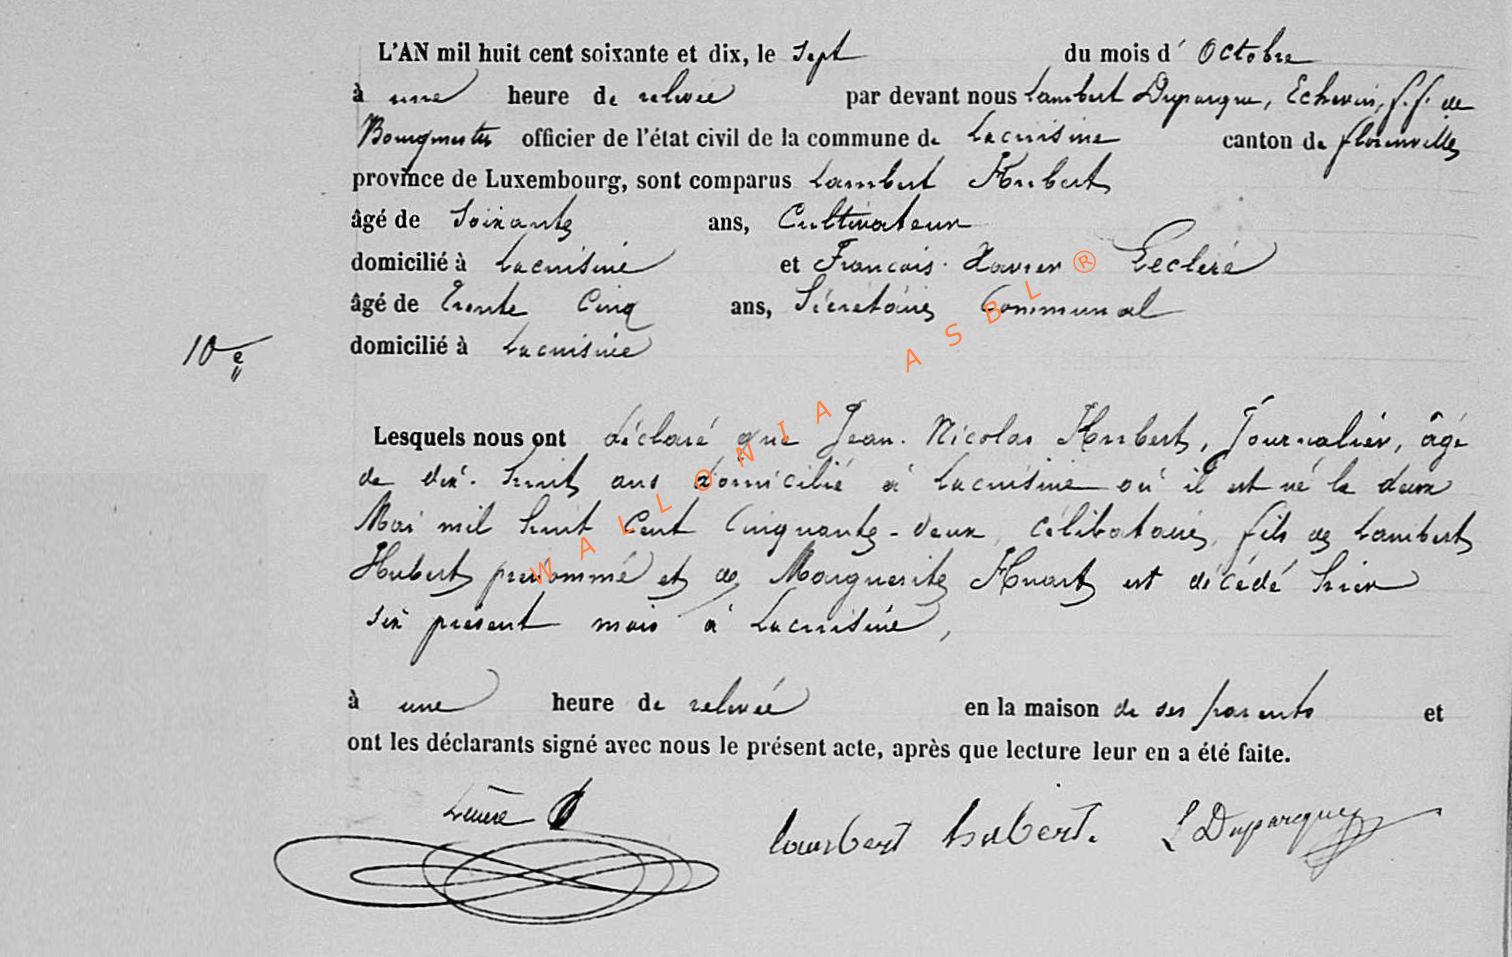 L'AN mil huit cent soixante et dix, le Sept du mois d' Octobre
à une heure de relevée par devant nous Lambert Duparque, Echevin, f.f. de
Bourgmestre officier de l'état civil de la commune de Lacuisine canton de florenville
province de Luxembourg, sont comparus Lambert Hubert
âgé de Soixante ans, Cultivateur
domicilié à Lacuisine et Francois Xavier
âgé de Trente Cinq ans, Sécrétaire Communal
10e domicilié à Lacuisine
Lesquels nous ont déclaré que Jean Nicolas Hubert, Journalier, âgé
de dix-huit ans domicilié à Lacuisine où il est né le deux
Mai mil huit Cent Cinquante-deux, Célibataire, fils de Lambert
Hubert prénommé et de Marguerite Huart est décédé hier
six présent mois à Lacuisine,
à une heure de relevée en la maison de ses parents et
ont les déclarants signé avec nous le présent acte, après que lecture leur en a été faite.
Lambert hubert. L Duparque
WALLONIA ASBL ®